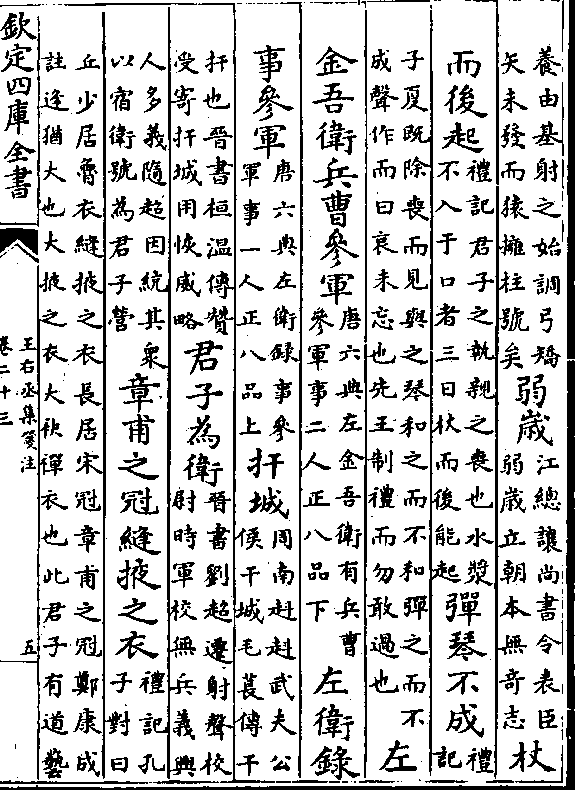 養由基射之始調弓矯
矢未發而猿擁柱號矣
弱歳
江總讓尚書令表臣
弱歳立朝本無奇志
杖
而後起
禮記君子之執親之喪也水漿
不入于口者三日杖而後能起
彈琴不成
禮
記
子夏既除喪而見與之琴和之而不和彈之而不
成聲作而曰哀未忘也先王制禮而勿敢過也
左
金吾衛兵曹參軍
唐六典左金吾衛有兵曹
參軍事二人正八品下
左衛錄
事參軍
唐六典左衛録事參
軍事一人正八品上
扞城
周南赳赳武夫公
侯干城毛萇傳干
扞也晉書桓温傳贊
受寄扞城用恢威略
君子為衛
晉書劉超遷射聲校
尉時軍校無兵義興
人多義隨超因統其衆
以宿衛號為君子營
章甫之冠縫掖之衣
禮記孔
子對曰
丘少居魯衣縫掖之衣長居宋冠章甫之冠鄭康成
註逢猶大也大掖之衣大袂禪衣也此君子有道藝
欽定四庫全書
王右丞集箋注
卷二十三
五